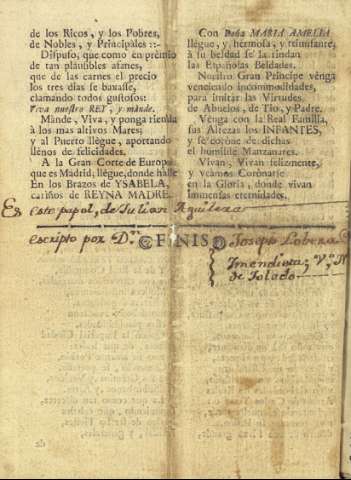 de los Ricos, y los Pobres,
de Nobles, y Principales ::-
Dispuso, que como en premio
de tan plausibles afanes,
que de las carnes el precio
los tres dias se baxasse,
clamando todos gustosos:
Viva nuestro REY, y mande.
Mande, Viva, y ponga rienda
à los mas altivos Mares;
y al Puerto llègue, aportando
llenos de felicidades.
A la Gran Corte de Europa
que es Madrid, llegue, donde halle
En los Brazos de YSABELA,
cariños de REYNA MADRE.
Con Doña MARIA AMELIA
llègue, y hermosa, y triunfante,
à su beldad se la rindan
las Españolas Beldades.
Nuestro Gran Principe vènga
venciendo incommodidades,
para imitar las Virtudes
de Abuelos, de Tio, y Padre.
Vènga con la Real Familia,
sus Altezas los INFANTES,
y se corone de dichas
el humilde Manzanares.
Vivan, Vivan felizmente,
y veamos Coronarse
en la Gloria, donde vivan
immensas eternidades.
Es este papel, de Julian Aguilera
FINIS
escripto por D.n Joseph Lobera
Imendieta; V.º
de Toledo